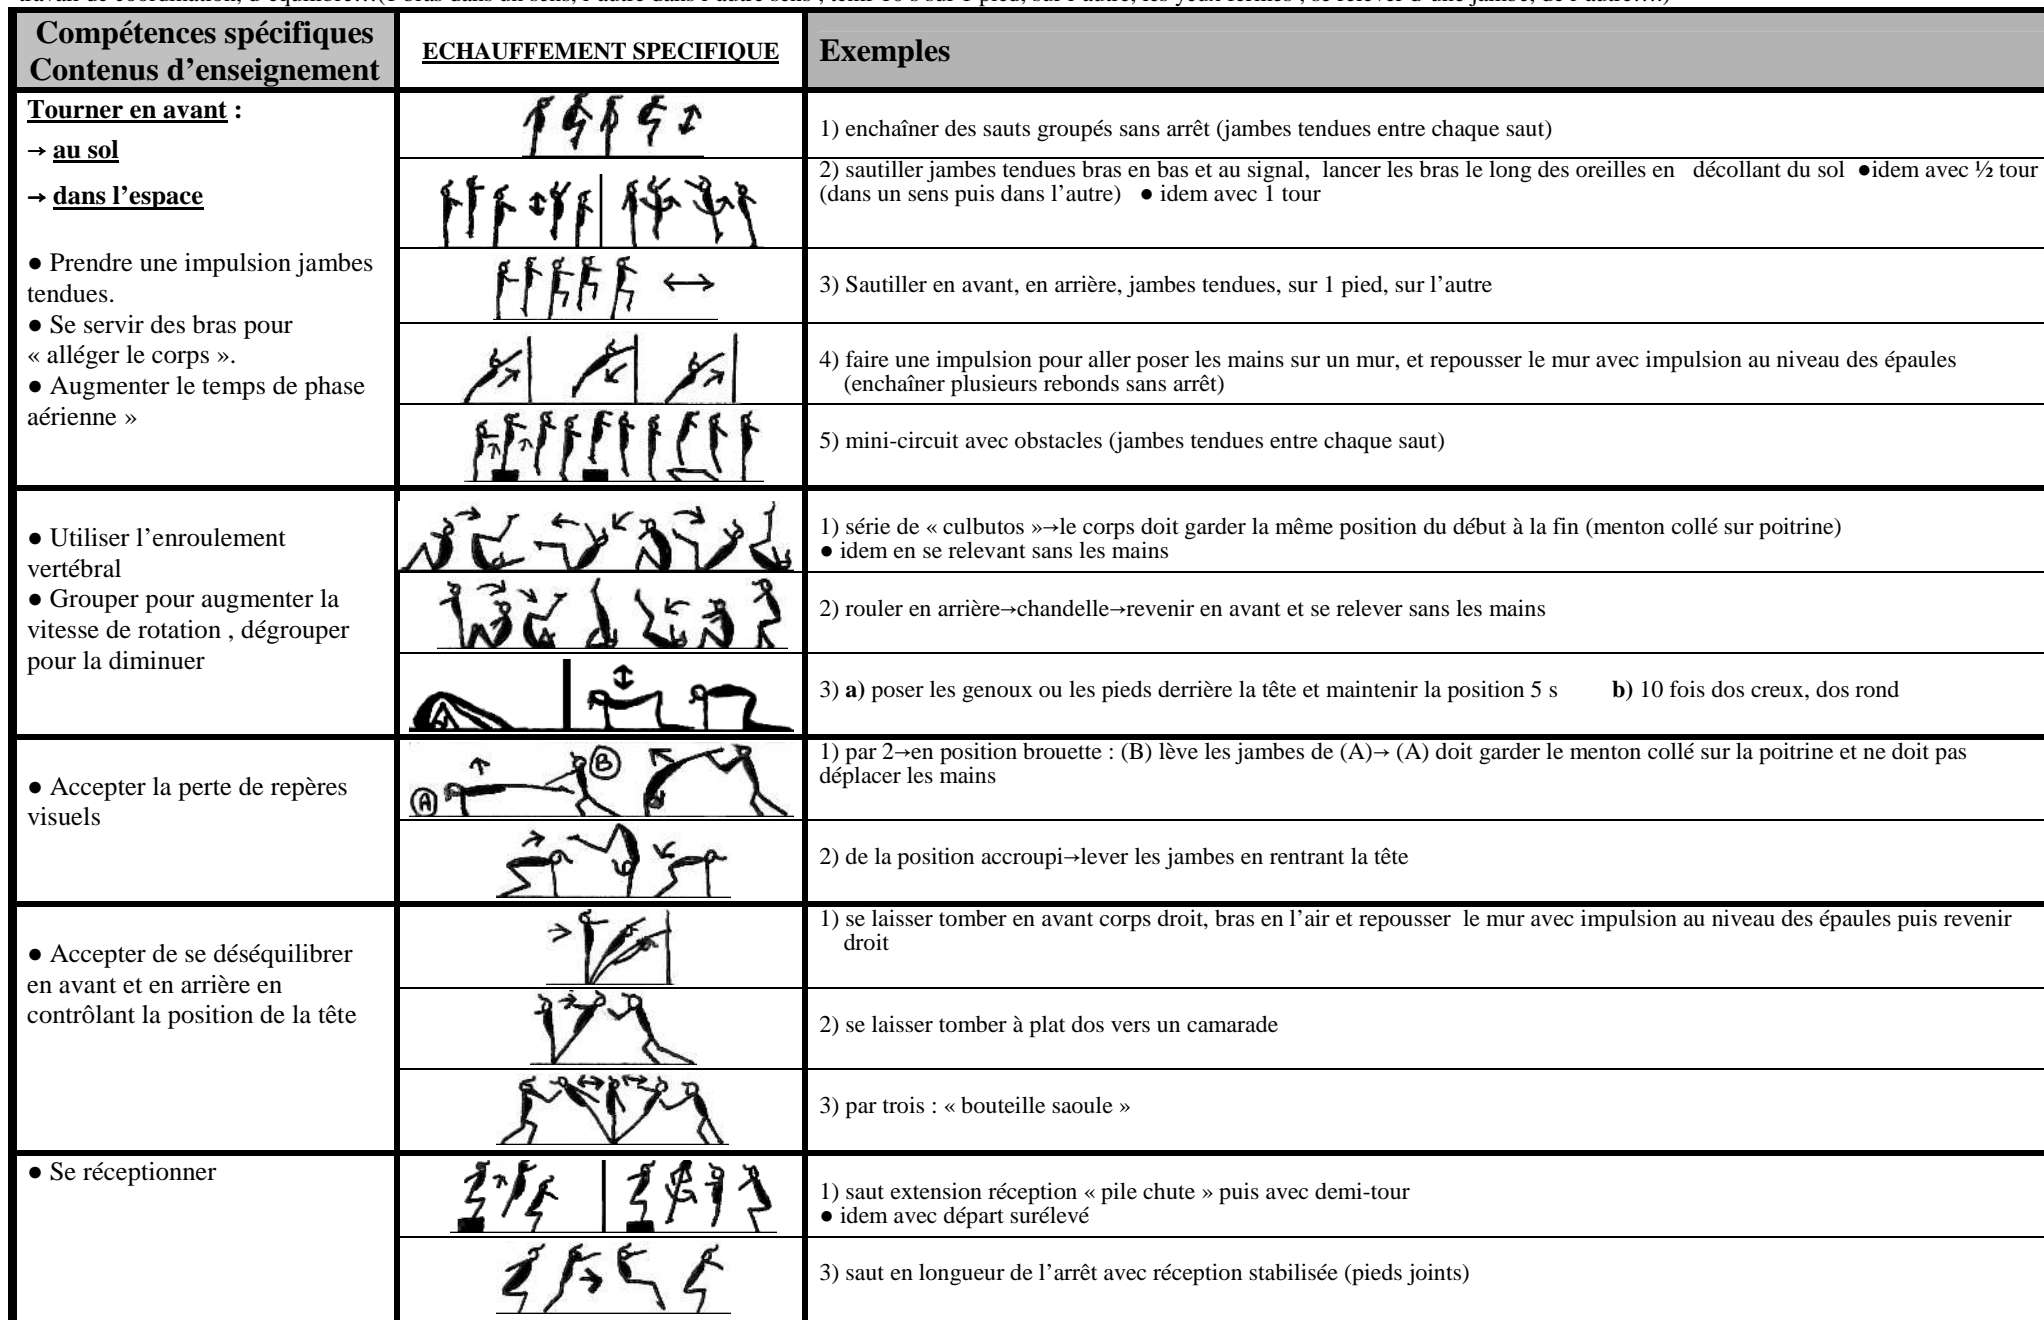 Compétences spécifiques
Contenus d’enseignement
ECHAUFFEMENT SPECIFIQUE
Exemples
Tourner en avant :
→ au sol
→ dans l’espace
● Prendre une impulsion jambes
tendues.
● Se servir des bras pour
« alléger le corps ».
● Augmenter le temps de phase
aérienne »
1) enchaîner des sauts groupés sans arrêt (jambes tendues entre chaque saut)
2) sautiller jambes tendues bras en bas et au signal, lancer les bras le long des oreilles en décollant du sol ●idem avec ½ tour
(dans un sens puis dans l’autre) ● idem avec 1 tour
3) Sautiller en avant, en arrière, jambes tendues, sur 1 pied, sur l’autre
4) faire une impulsion pour aller poser les mains sur un mur, et repousser le mur avec impulsion au niveau des épaules
(enchaîner plusieurs rebonds sans arrêt)
5) mini-circuit avec obstacles (jambes tendues entre chaque saut)
● Utiliser l’enroulement
vertébral
● Grouper pour augmenter la
vitesse de rotation , dégrouper
pour la diminuer
1) série de « culbutos »→le corps doit garder la même position du début à la fin (menton collé sur poitrine)
● idem en se relevant sans les mains
2) rouler en arrière→chandelle→revenir en avant et se relever sans les mains
3) a) poser les genoux ou les pieds derrière la tête et maintenir la position 5 s b) 10 fois dos creux, dos rond
● Accepter la perte de repères
visuels
A
B
1) par 2→en position brouette : (B) lève les jambes de (A)→ (A) doit garder le menton collé sur la poitrine et ne doit pas
déplacer les mains
2) de la position accroupi→lever les jambes en rentrant la tête
● Accepter de se déséquilibrer
en avant et en arrière en
contrôlant la position de la tête
1) se laisser tomber en avant corps droit, bras en l’air et repousser le mur avec impulsion au niveau des épaules puis revenir
droit
2) se laisser tomber à plat dos vers un camarade
3) par trois : « bouteille saoule »
● Se réceptionner
1) saut extension réception « pile chute » puis avec demi-tour
● idem avec départ surélevé
3) saut en longueur de l’arrêt avec réception stabilisée (pieds joints)